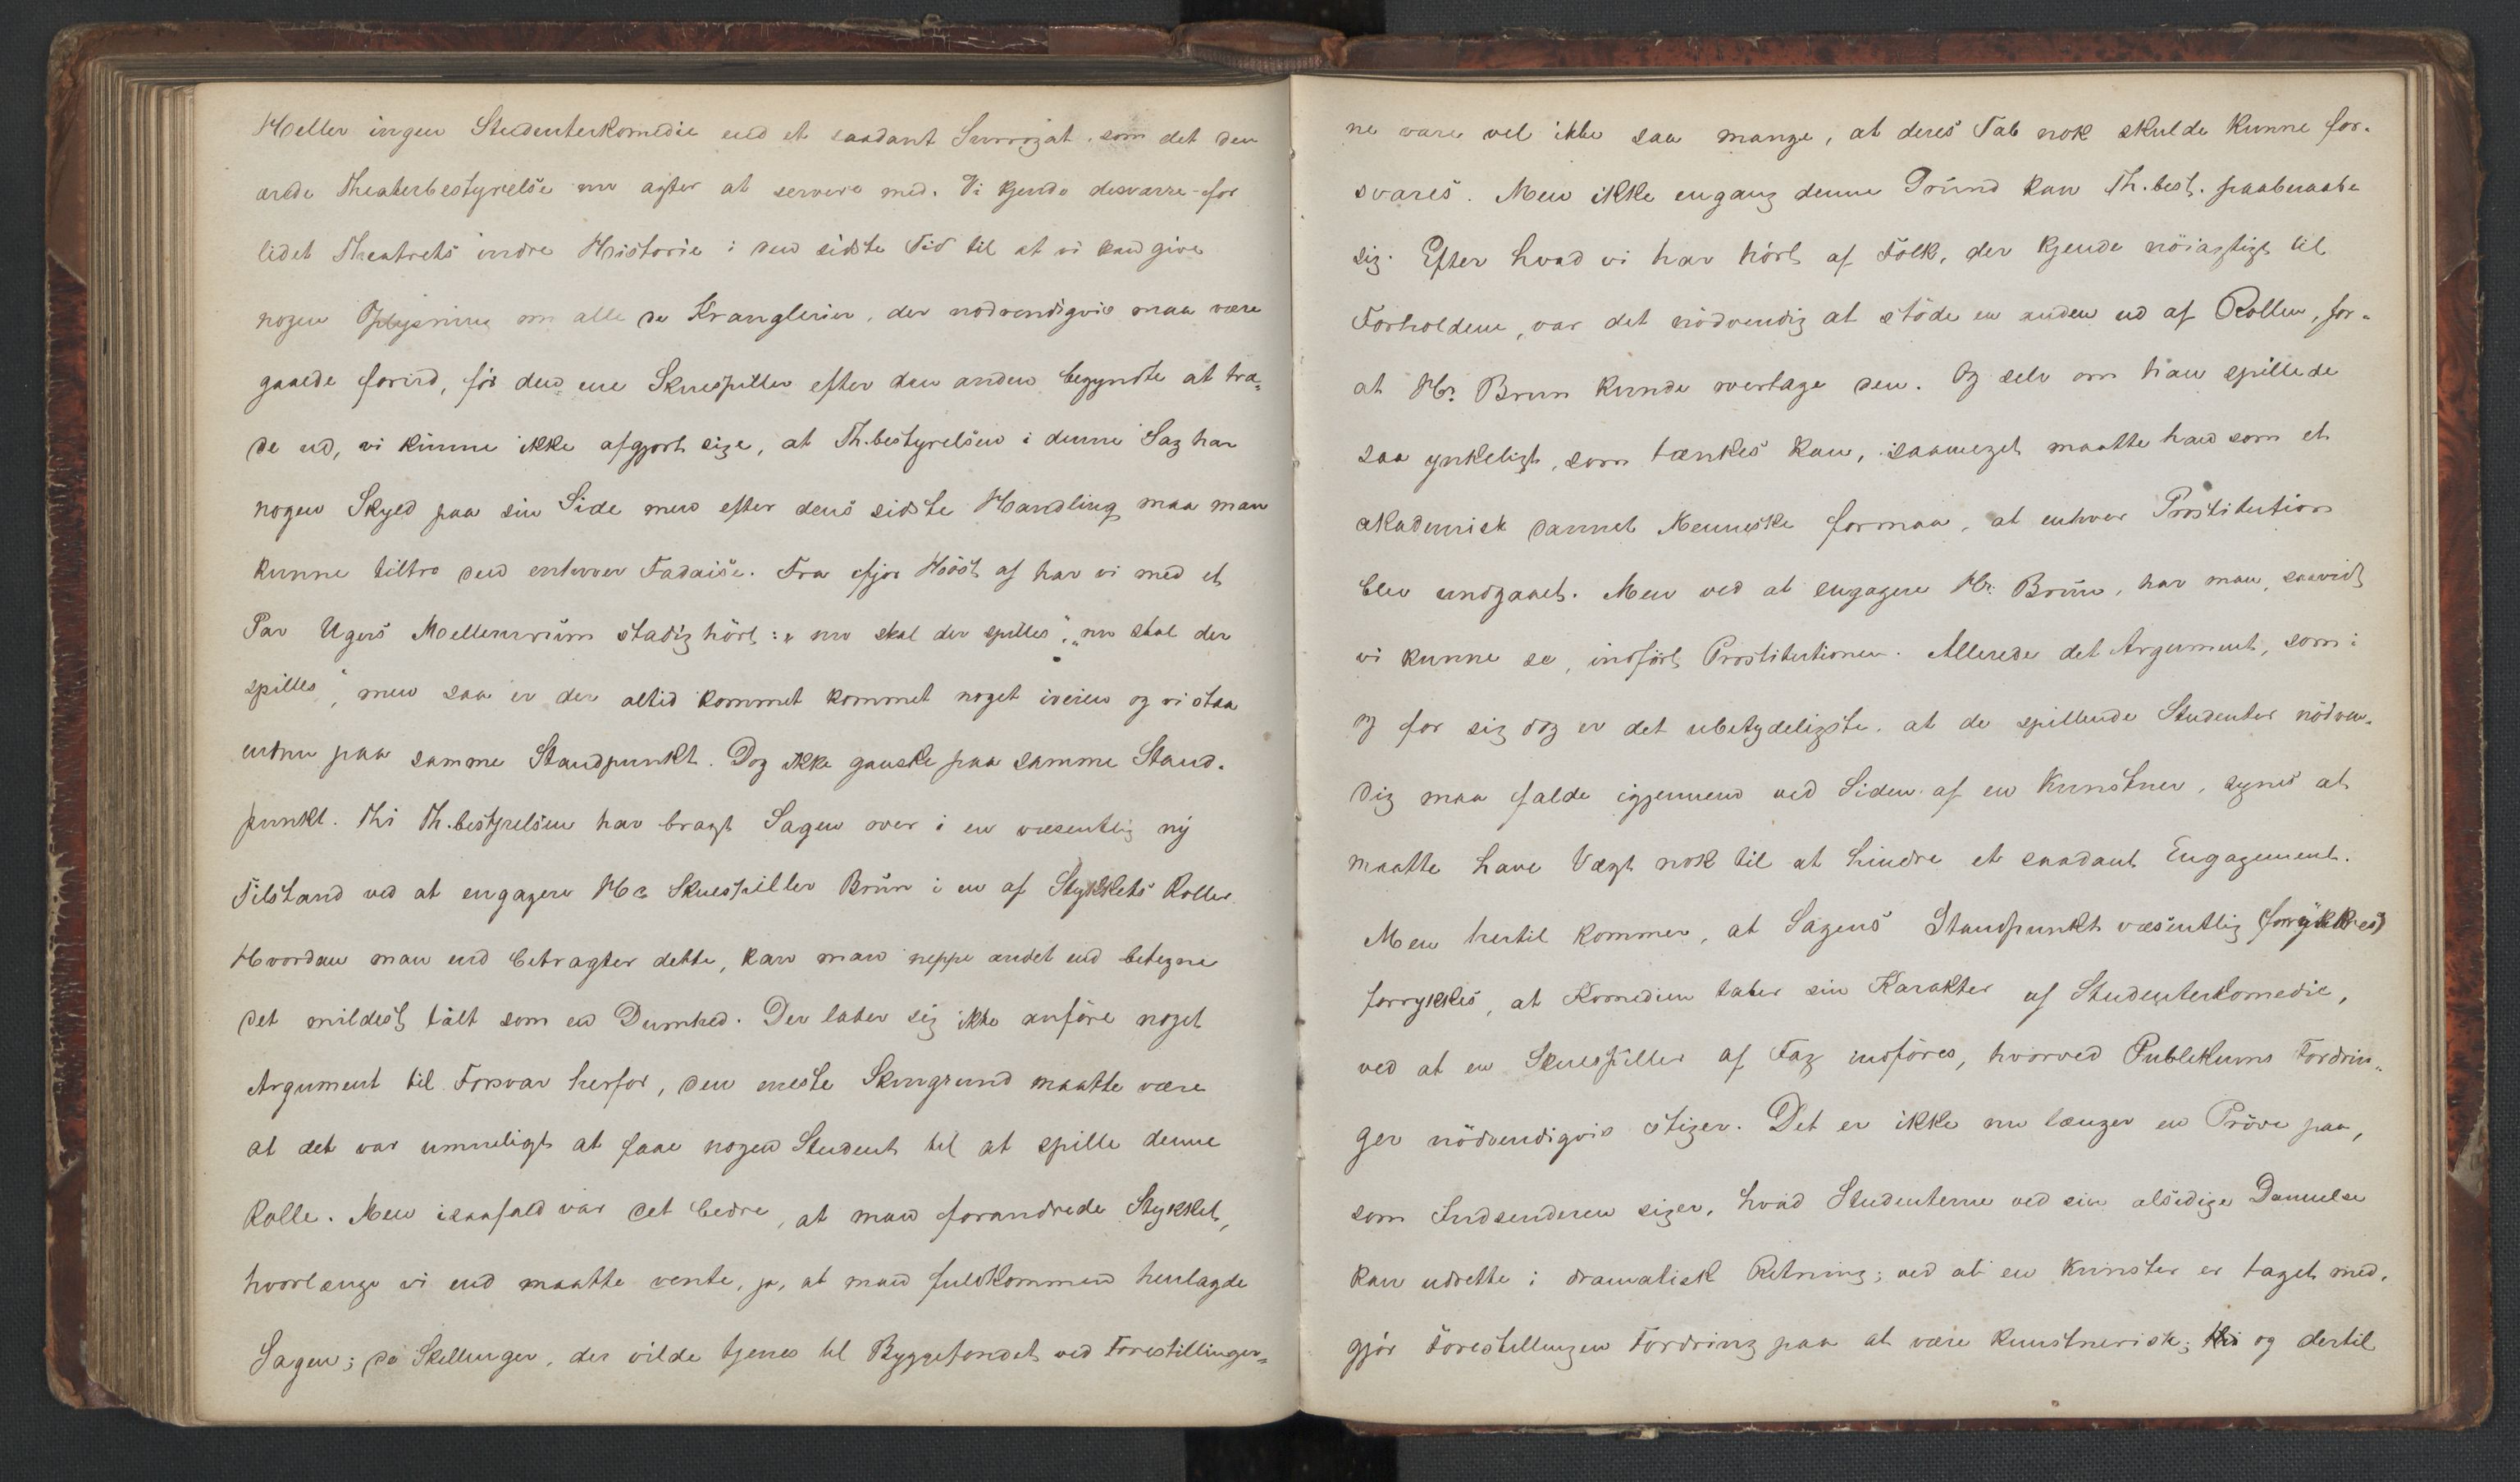 Heller ingen Studenterkomedie end et saadant Surrogat, som det den
ærede Theaterbestyrelse nu agter at servere med. Vi kjende desværre for
lidet Theatrets indre Historie i den sidste Tid til at vi kan give
nogen Oplysning om alle de Kranglerier, der nødvendigvis maa være
gaaede forud, før den ene Skuespiller efter den anden begyndte at træ-
de ud, vi kunne ikke afgjort sige, at Th.bestyrelsen i denne Sag har
nogen Skyld paa sin Side men efter dens sidste Handling maa man
kunne tiltro den enhver Fadaise. Fra ifjor Höst af har vi med et
Par Ugers Mellemrum stadig hört: "nu skal der spilles", "nu skal der
spilles", men saa er der altid kommet kommet noget iveien og vi staa
endnu paa samme Standpunkt. Dog ikke ganske paa samme Stand-
punkt. Thi Th.bestyrelsen har bragt Sagen over i en væsentlig ny
Tilstand ved at engagere Hr Skuespiller Brun i en af Stykkets Roller.
Hvordan man end betragter dette, kan man neppe andet end betegne
det mildest talt som en Dumhed. Der lader sig ikke anföre noget
Argument til Forsvar herfor, den eneste Skingrund maatte være
at det var umueligt at faae nogen Student til at spille denne
Rolle. Men isaafald var det bedre, at man forandrede Stykket,
hvorlænge vi end maatte vente, ja, at man fuldkommen henlagde
Sagen; de Skillinger, der vilde tjenes til Byggefondet ved Forestillinger-
ne vare vel ikke saa mange, at deres Tab nok skulde kunne for-
svares. Men ikke engang denne Grund kan Th.best. paaberaabe
sig. Efter hvad vi har hört af Folk, der kjende nöiagtigt til
Forholdene, var det nödvendig at stöde en anden ud af Rollen, for-
at Hr. Brun kunde overtage den. Og selv om han spillede
saa ynkeligt, som tænkes kan, saameget maatte han som et
akademisk dannet Menneske formaa, at enhver Prostitution
blev undgaaet. Men ved at engagere Hr. Brun, har man, saavidt
vi kunne se, indfört Prostitutionen. Allerede det Argument, som i
og for sig dog er det ubetydeligste, at de spillende Studenter nödven-
dig maa falde igjennem ved Siden af en Kunstner, synes at
maatte have Vægt nok til at hindre et saadant Engagement.
Men hertil kommer, at Sagens Standpunkt væsentlig (forrykkes)
forrykkes, at Komedien taber sin Karakter af Studenterkomedie,
ved at en Skuespiller af Fag indföres, hvorved Publikums Fordrin-
ger nödvendigvis stiger. Det er ikke nu længer en Pröve paa,
som Indsenderen siger, hvad Studenterne ved sin alsidige Dannelse
kan udrette i dramatisk Retning; ved at en Kunstner er taget med,
gjör Forestillingen Fordring paa at være kunstnerisk; thi og dertil